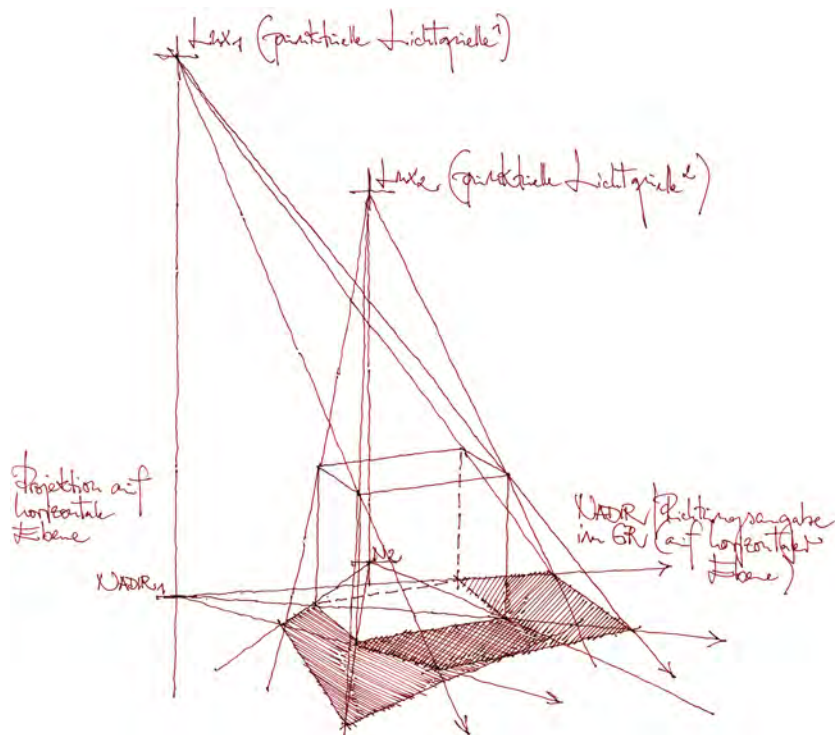 Lux1 (punktuelle Lichtquelle1)
Lux2 (punktuelle Lichtquelle2)
Projektion auf
horizontale
Ebene
NADIR/Richtungsangabe
im GR (auf horizontaler
Ebene)
N2
NADIR1